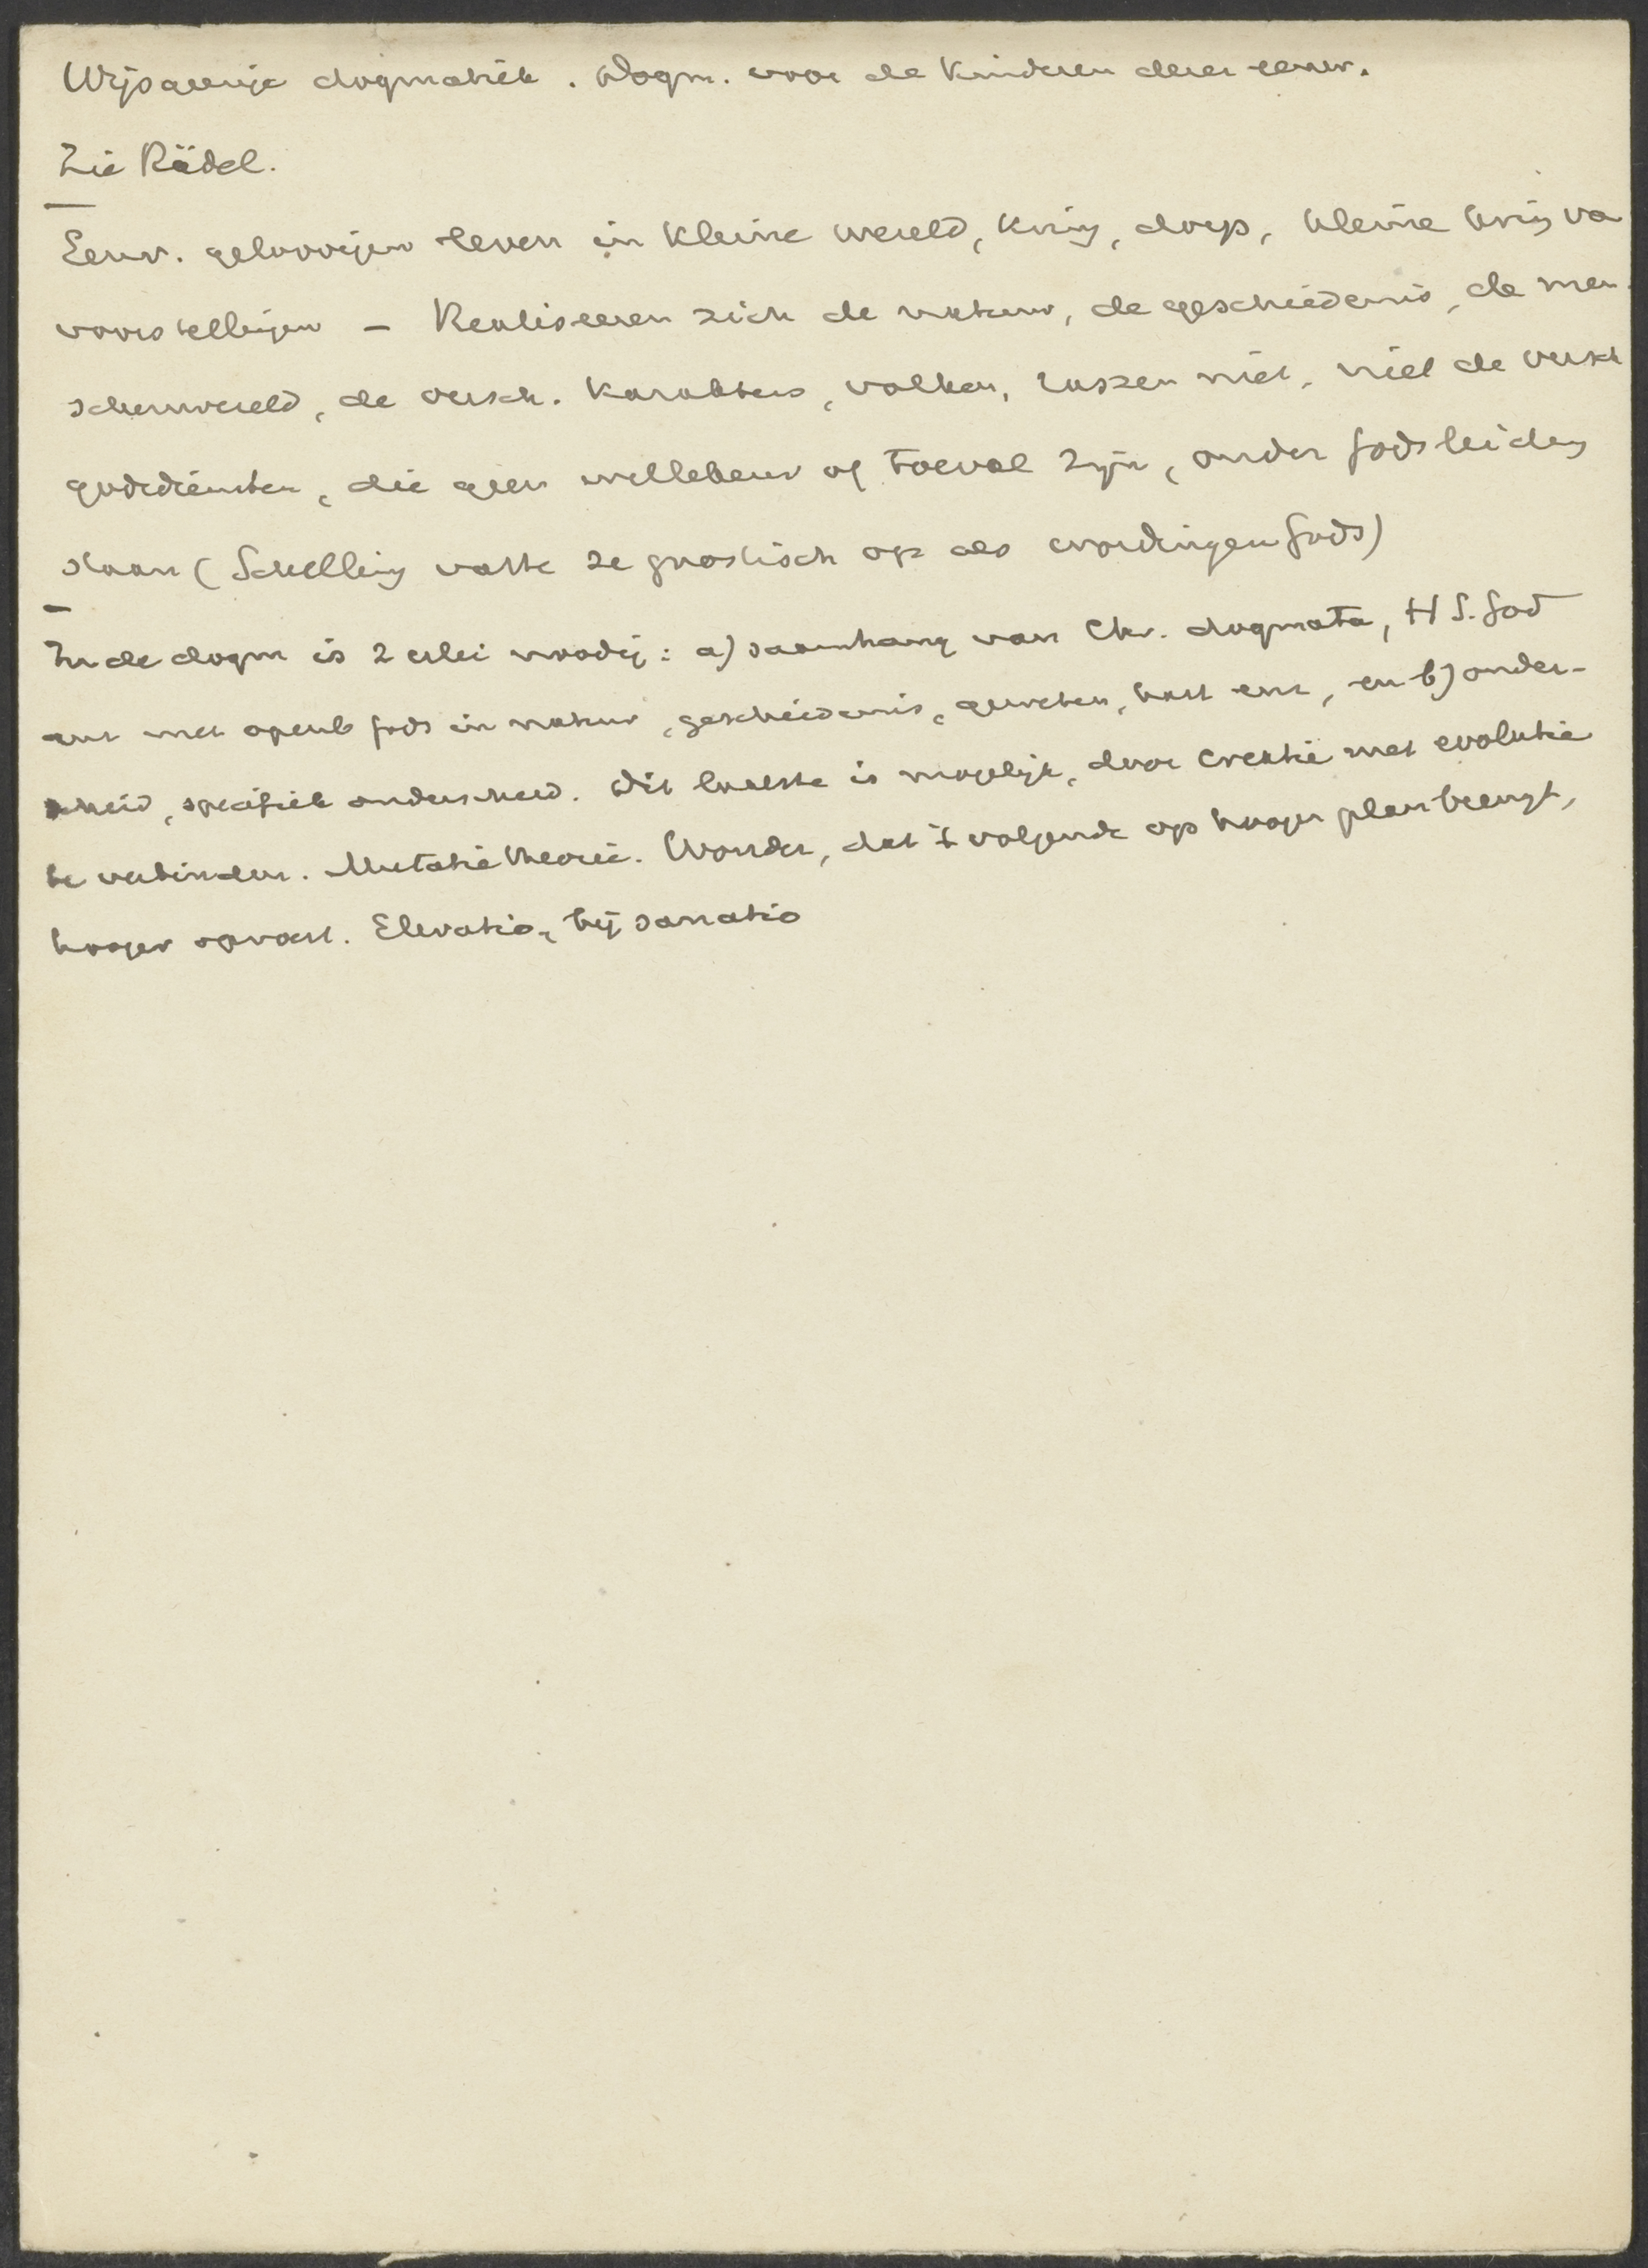 Wijsgeerige dogmatiek. Dogm. voor de kinderen dezer eeuw.
Zie Rädel.
Eenv. geloovigen leven in kleine wereld, kring, dorp, kleine kring va
voorstellingen – Realiseeren zich de natuur, de geschiedenis, de men
schenwereld, de versch. karakters, volken, rassen niet, niet de versch
godsdiensten, die geen willekeur of toeval zijn, onder Gods leiding
staan (Schelling vatte ze gnostisch op als wordingen Gods)
In de dogm is 2 erlei noodig: a) saamhang van Chr. dogmata, H S. God
enz met openb Gods in natuur, geschiedenis, geweten, hart enz, en b) onder-
scheid, specifiek onderscheid. Dit laatste is mogelijk, door creatie met evolutie
te verbinden. Mutatie theorie. Wonder, dat 't volgende op hooger plan brengt,
hooger opvoert. Elevatio, bij sanatio